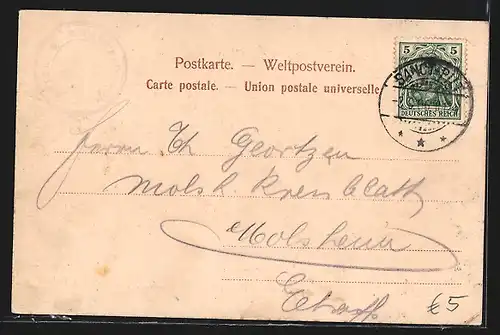 Postkarte. — Weltpostverein.
Carte postale. — Union postale universelle
5 5
DEUTSCHES REICH
SANCT
Herrn Th Geortzen
Molsh. Kreisblatt
Molsheim
Elsaß
€5